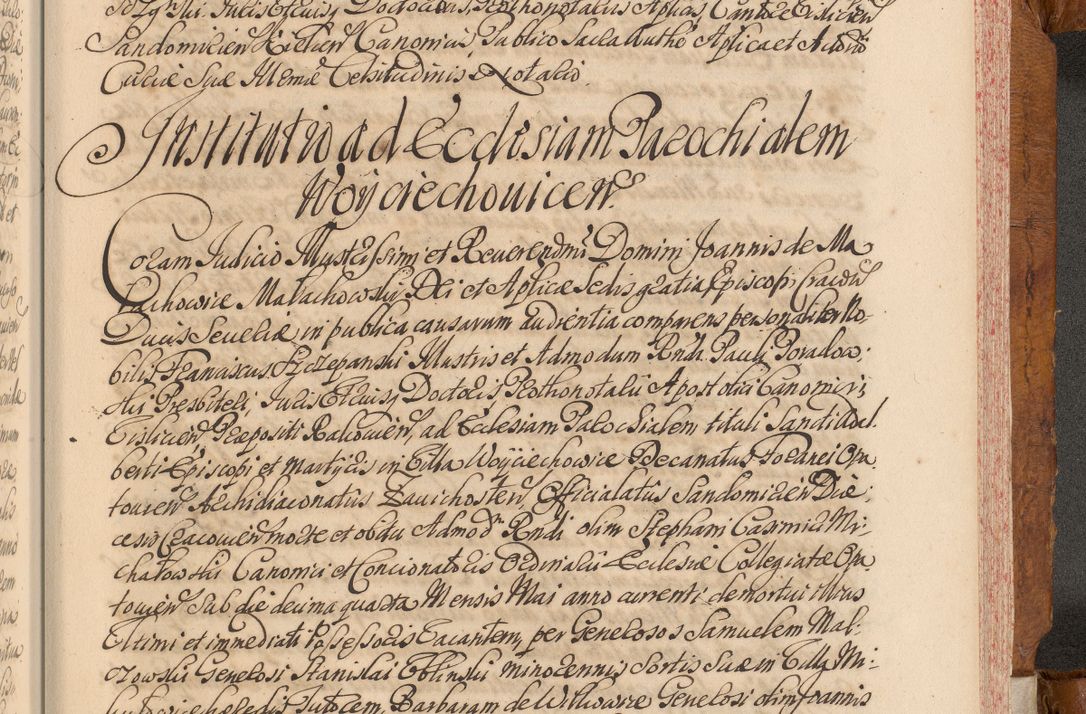 Sandomirien Kielcien Canonicus, Publico Sacra Authe Aplica et Actorũ
Curiæ Suæ Illrmæ Celsitudinis Notario.
Institutio ad Ecclesiam Parochialem
Woyciechovicen.
Coram Judicio Illustrissimi et Reverendmi Domini Joannis de Ma
łachowice Małachowskij Dei et Aplicæ Sedis gratia Episcopi Cracovien
Ducis Severiæ, in publica causarum audientia comparens personaliter No-
bilis Franciscus Szczepanski Illustris et Admodum Rndi Pauli
Juris Utriusq Doctoris, Prothonotarii Apostolici Canonici
Vislicien, Præpositi Rakovien, ad Ecclesiam Parochialem tituli Sancti Adal
berti Episcopi et Martyris in Villa Woyciechowice Decanatus Foranei Opa
tovien Archidiaconatus Zavichosten Officialatus Sandomirien Diæ-
cesis Cracovien morte et obitu Admod Rndi olim Stephani Casimiri Mi-
chałowski Canonici et Concionatoris Ordinarii Ecclesiæ Collegiatæ Opa
tovien Sub die decima quarta Mensis Mai anno currenti demortui illius
Ultimi et immediati Possessoris Vacantem, per Generosos Samuelem Mal-
Generosi Stanislai minorennis Sortis Suæ in Villa Mi-
hæredis Tutorem, Barbaram de Generosi olim Joannis